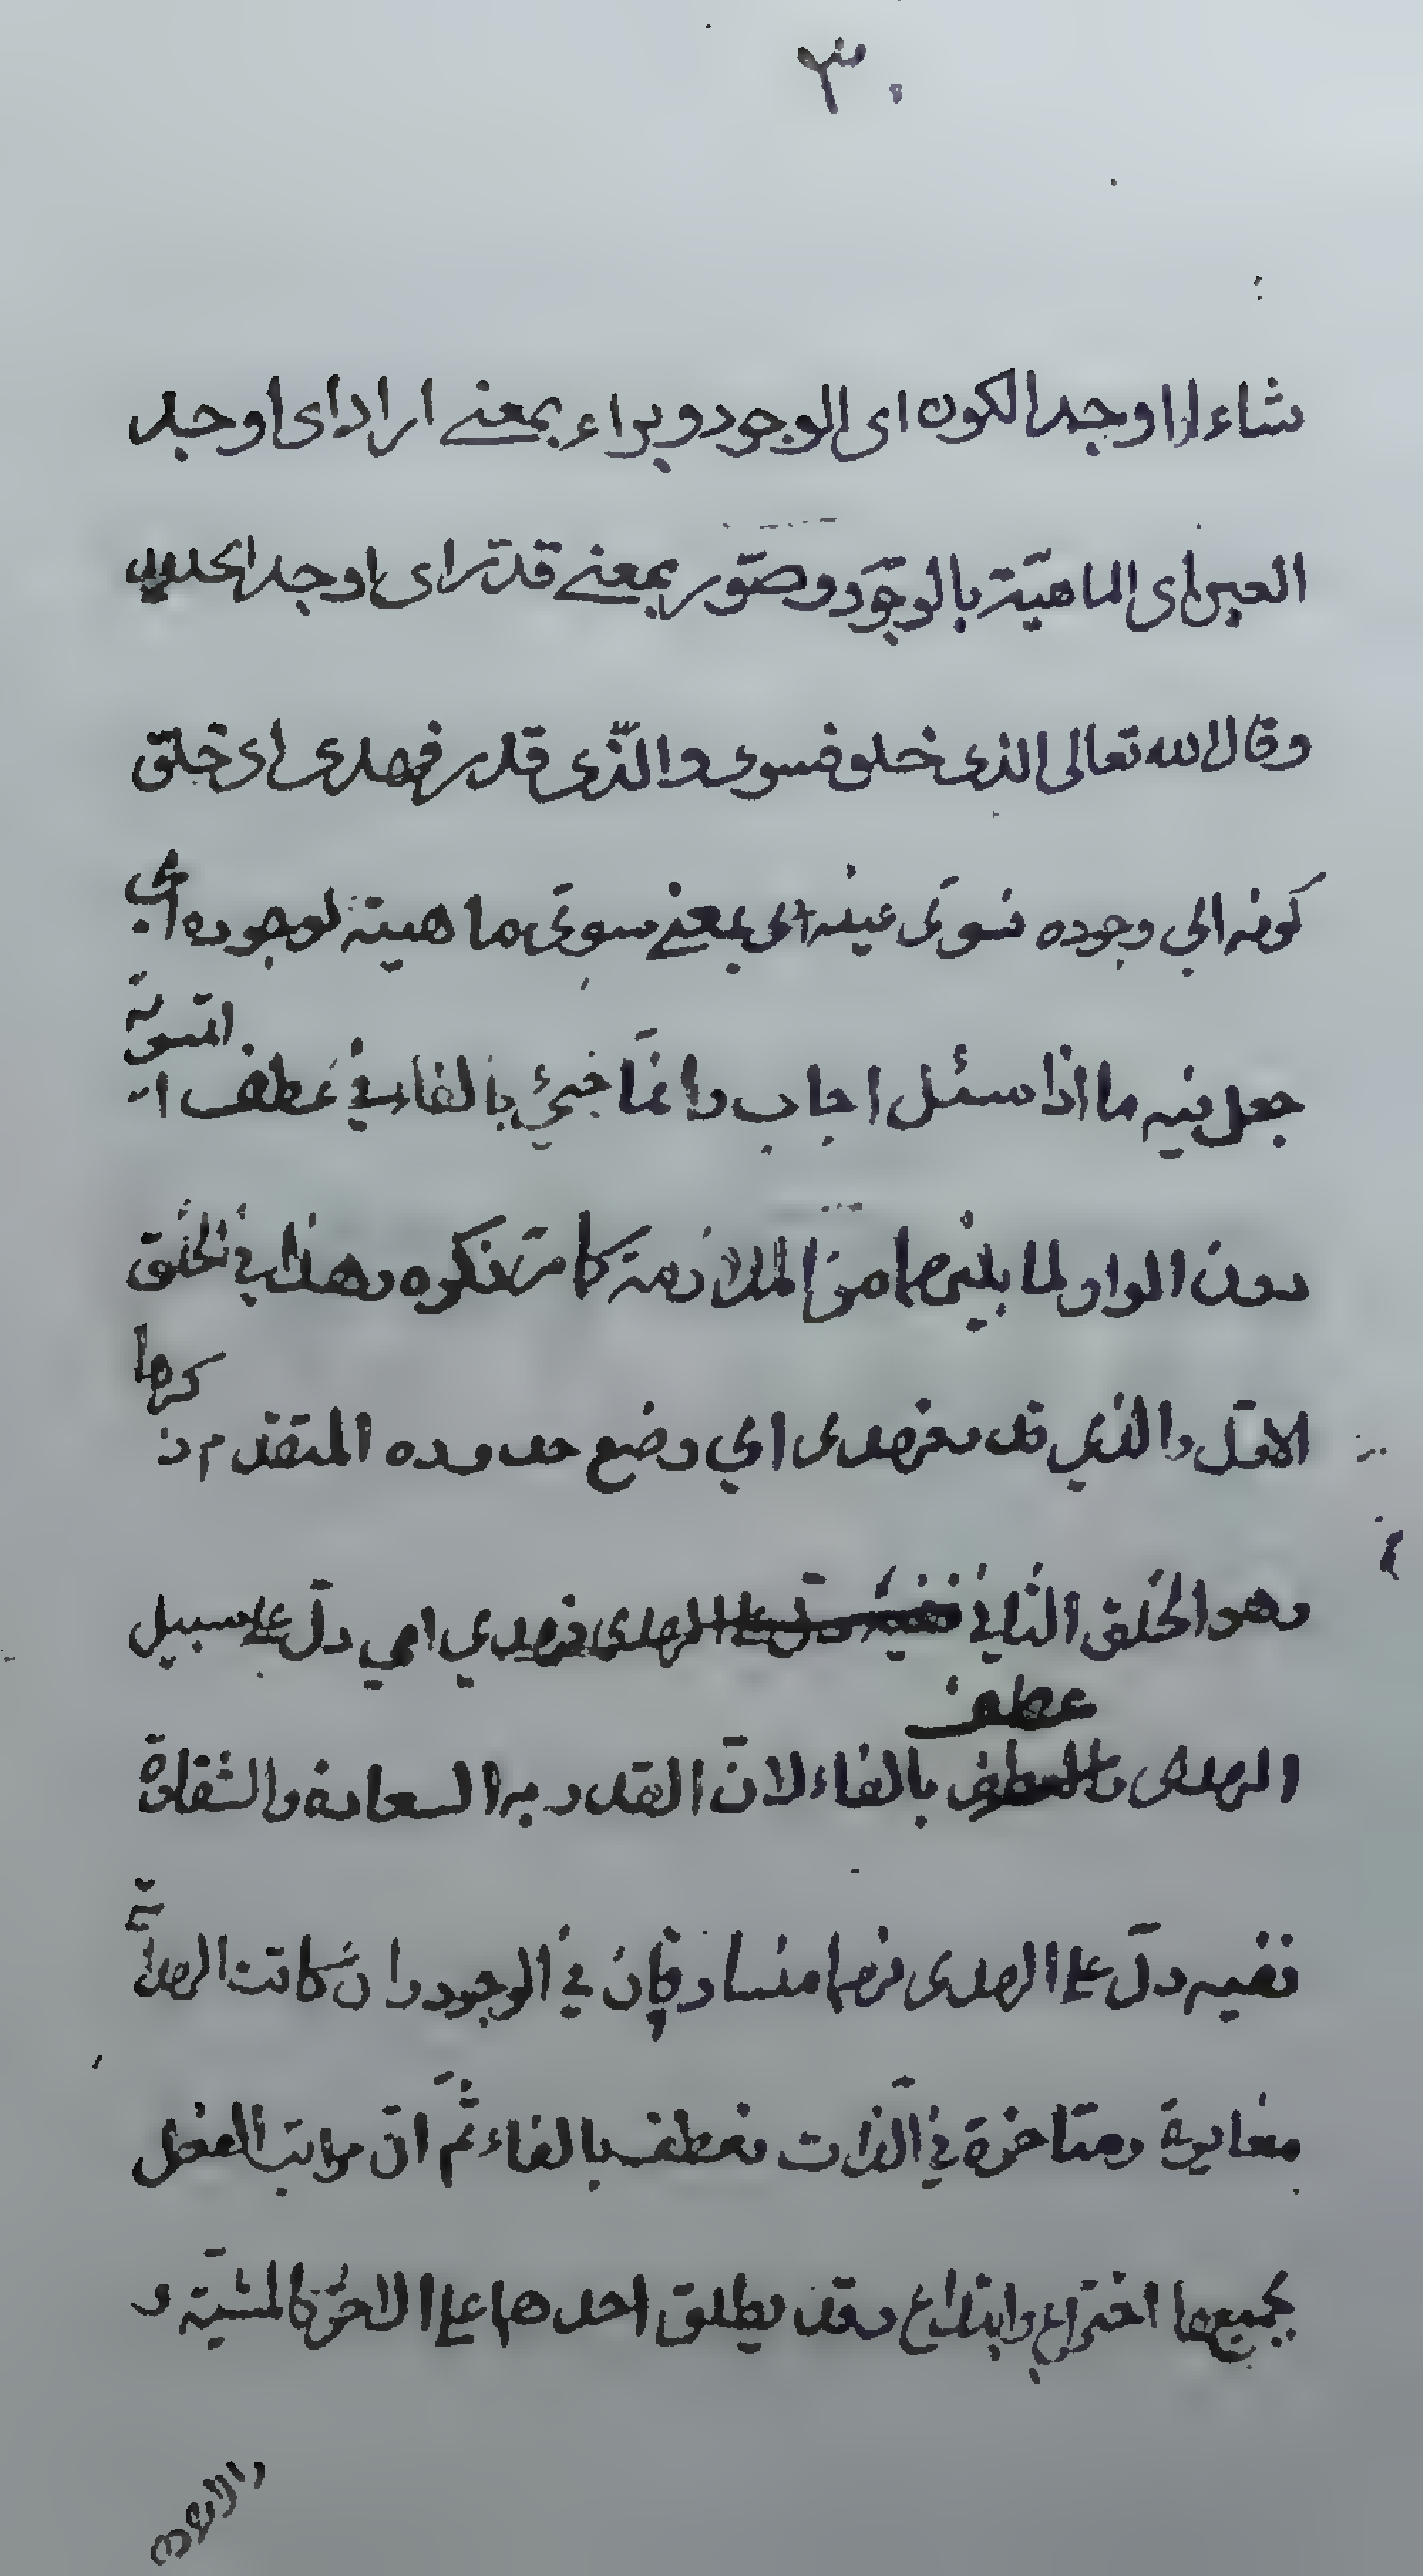 ٣٠
شاء اذا اوجد الكون اى الوجود وبراء بمعنى اراد اى اوجد
العين اى الماهيّة بالوجود وصوّر بمعنى قدّر اى اوجد الحدود
وقال الله تعالى الذى خلق فسوى والذّى قدر فهدى اى خلق
كونه اي وجوده فسوّى عينه اى بمعنى سوّى ماهيته لوجوده اي
جعل فيه ما اذا سئل اجاب وانمّا جيئ بالفاء في عطف التسوية
دون الواو لما بينهما من الملازمة كما مرّ ذكره وهذا في الخلق
الاوّل والذي قدر فهدى اي وضع حدوده المتقدم ذكرها
وهو الخلق الثاني ففيه دلّ على الهدى فهدي اي دلّ على سبيل
الهدى والعطف عطف بالفاء لانّ القدر به السعادة والشقاوة
ففيه دلّ على الهدى فهما متساوقان في الوجود وان كانت الهداية
مغايرة ومتاخرة في الذات فعطف بالفاء ثمّ انّ مراتب الفعل
بجميعها اختراع وابتداع وقد يطلق احدها على الاخر كالمشيّة و
والارادة